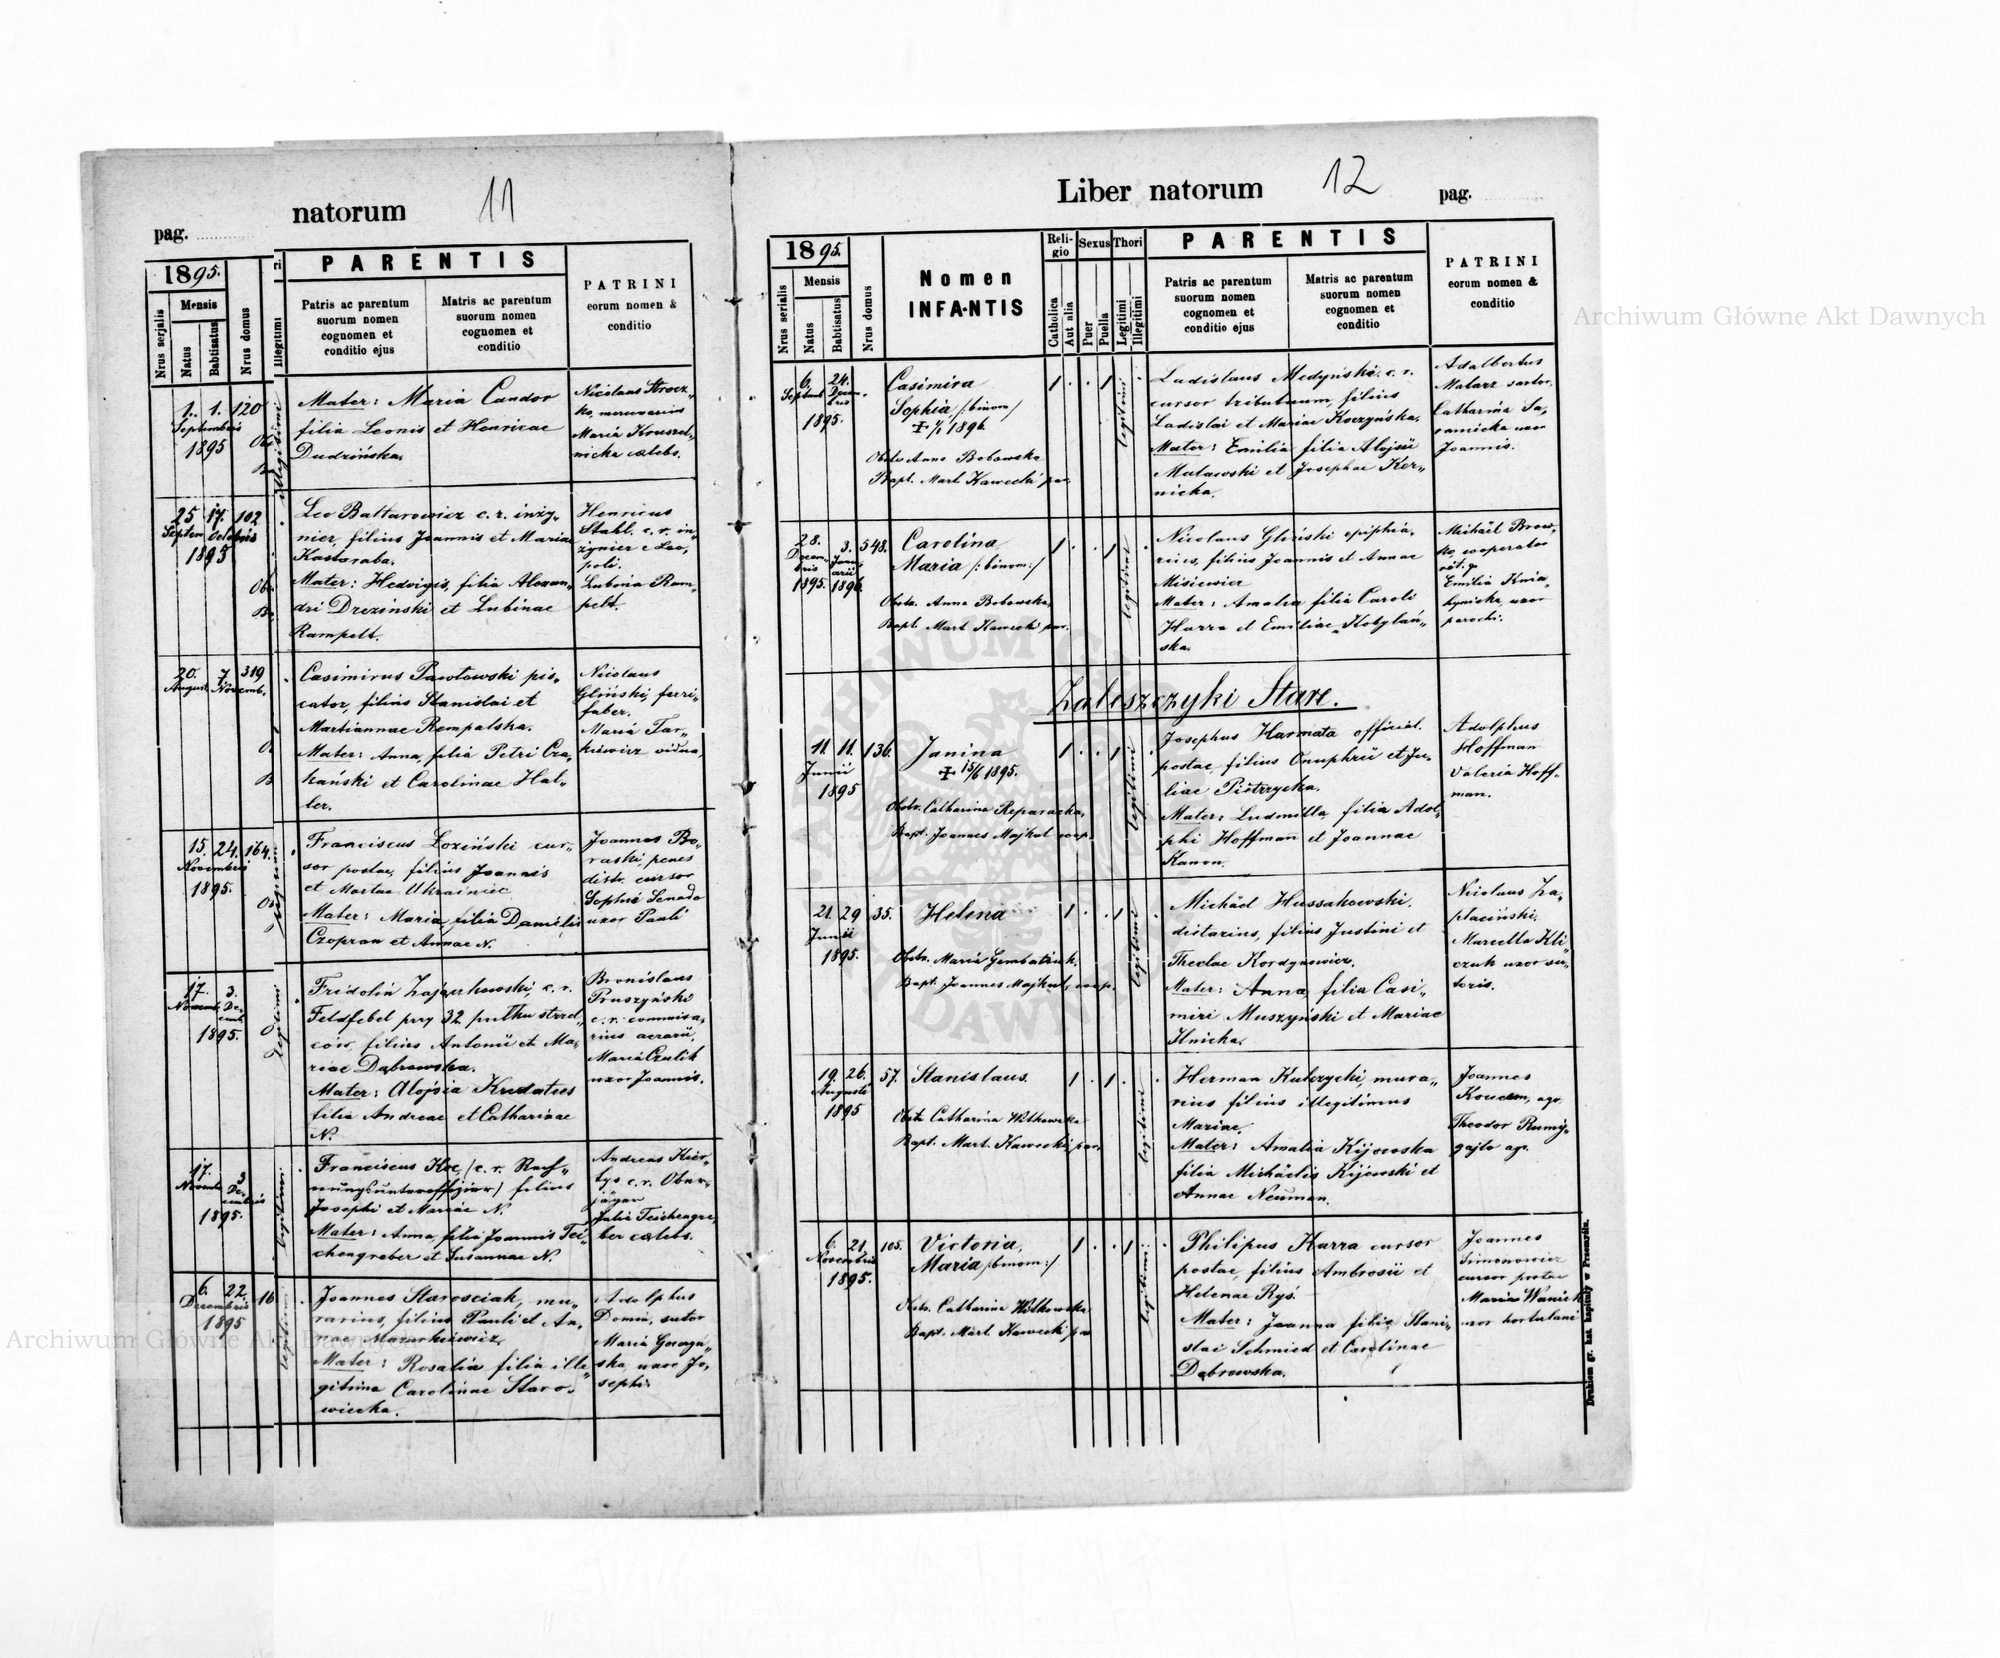 natorum 11
pag.
1895.
PARENTIS
PATRINI
eorum nomen &
conditio
Nrus serjalis
Mensis
Natus
Babtisatus
Nrus domus
Illegitimi
Patris ac parentum
suorum nomen
cognomen et
conditio ejus
Matris ac parentum
suorum nomen
cognomen et
conditio
1. 1. 120
Septembris
1895
illegitimi
Mater: Maria Candor
filia Leonis et Henricae
Dudzińska.
Nicolaus
Maria
nicka caelebs.
25 17. 102
Septem. Octobris
1895
Leo Battarowicz c. r. inży„
nier, filius Joannis et Mariae
Kastaraba.
Mater: Hedvigis, filia Alexan„
dri Drezinski et Lubinae
Rampelt.
Henricus
Stahl. c. r. in„
żynier e Leo„
poli.
Lubina Ram„
pelt.
20. 7. 319
August. Novemb.
Casimirus Pawłowski pis„
cator, filius Stanislai et
Martiannae Rempalska.
Mater: Anna, filia Petri Cza„
kański et Carolinae Hal„
ter.
Nicolaus
Gliński, ferri„
faber.
Maria Tar„
kiewicz vidua.
15. 24. 164.
Novembris
1895.
Franciscus Łoziński cur„
sor postae, filius Joannis
et Martae Ukrainiec
Mater: Maria, filia Danielis
Czopran et Annae N.
Joannes Bo„
raski, penes
distr. cursor
Sophia
uxor Pauli
17. 3.
Novemb. De„
cemb.
1895.
legitimi
Fridolin Zajączkowski, c. r.
Feldfebel przy 32 pułku strzel„
ców, filius Antonii et Ma„
riae Dąbrowska.
Mater: Alojsia Kredatus
filia Andreae et Catharinae
N.
Bronislaus
Pruszyński
c. r. commisa„
rius aerarii.
Maria Czulik
uxor Joannis.
17. 3
Novemb. De„
cembris
1895.
legitimi
Franciscus Koc, /c. r. Rech„
nungsunteroffizier/ filius
Josephi et Mariae N.
Mater: Anna, filia Joannis Tei„
chengreber et Susannae N.
Andreas Kier„
tys c. r. Ober„
jäger
Julia Teichengre„
ber caelebs.
6. 22. 16
Decembris
1895
legitimi
Joannes Starosciak, mu„
rarius, filius Pauli et An„
nae Mazurkiewicz.
Mater: Rosalia filia ille„
gitima Carolinae Staro„
wiecka.
Adolphus
Domin, sutor
Maria
ska, uxor Jo„
sephi.
Liber natorum 12
pag.
1895.
Nomen
INFANTIS
Reli-
gio
Sexus
Thori
PARENTIS
PATRINI
eorum nomen &
conditio
Nrus serialis
Mensis
Natus
Babtisatus
Nrus domus
Catholica
Aut alia
Puer
Puella
Legitimi
Illegitimi
Patris ac parentum
suorum nomen
cognomen et
conditio ejus
Matris ac parentum
suorum nomen
cognomen et
conditio
6. 24.
Septemb. Decem„
bris
1895.
Casimira
Sophia /:binom/
1896.
Obstr. Anna Bobowska
Bapt. Mart. Kawecki par.
legitimi
Ladislaus Medyński, c. r.
cursor tributuum, filius
Ladislai et Mariae Koczyńska.
Mater: Emilia filia Alojsii
Malawski et Josephae Ker„
nicka.
Adalbertus
Matarz sartor.
Catharina Sa„
uxor
Joannis.
28. 3. 548.
Decem„
bris Janu„
arii
1895. 1896.
Carolina
Maria /:binom:/
Obstr. Anna Bobowska
Bapt. Mart. Kawecki par.
legitimi
Nicolaus Gliński ephiphia„
rius, filius Joannis et Annae
Misiewicz
Mater: Amalia filia Caroli
Harra et Emiliae Kobylań„
ska.
Michäel Brow„
ko, cooperator
Emilia Knia„
hynicka, uxor
parochi.
Zaleszczyki Stare.
11. 11. 136.
Junii
1895
Janina
15/6 1895.
Obstr. Catharina Reparacka
Bapt. Joannes Majkut coop.
legitimi
Josephus Harmata official.
postae, filius Onuphrii et Ju„
liae Pietrzycka.
Mater: Ludmilla, filia Adol„
phi Hoffman et Joannae
Kanon.
Adolphus
Hoffman
Valeria Hoff„
man.
21. 29 35.
Junii
1895.
Helena
Obstr. Maria Gembatiuk.
Bapt. Joannes Majkut, coop.
legitimi
Michäel Hussakowski.
dietarius, filius Justini et
Theclae Kordynowicz.
Mater: Anna, filia Casi„
miri Muszyński et Mariae
Ilnicka.
Nicolaus Za„
płaciński.
Marcella Kli„
czuk uxor su„
toris.
19. 26. 57.
Augusti
1895
Stanislaus.
Obstr. Catharina Witkowska
Bapt. Mart. Kawecki, par.
legitimi
Herman Kulczycki, mura„
rius filius illegitimus
Mariae.
Mater: Amalia Kijowska
filia Michäelis Kijowski et
Annae Neuman.
Joannes
agr.
Theodor Rumi„
gajło agr.
6. 21. 105.
Novembris
1895.
Victoria,
Maria /:binom:/
Obstr. Catharina Witkowska
Bapt. Mart. Kawecki par
legitimi
Philipus Harra cursor
postae, filius Ambrosii et
Helenae Ryś.
Mater: Joanna filia Stani„
slai Schmied et Carolinae
Dąbrowska.
Joannes
Simonowicz
cursor postae
Maria Waniek
uxor hortulani
Drukiem gr. kat. kapituły w Przemyślu.
Archiwum Główne Akt Dawnych
Archiwum Główne Akt Dawnych